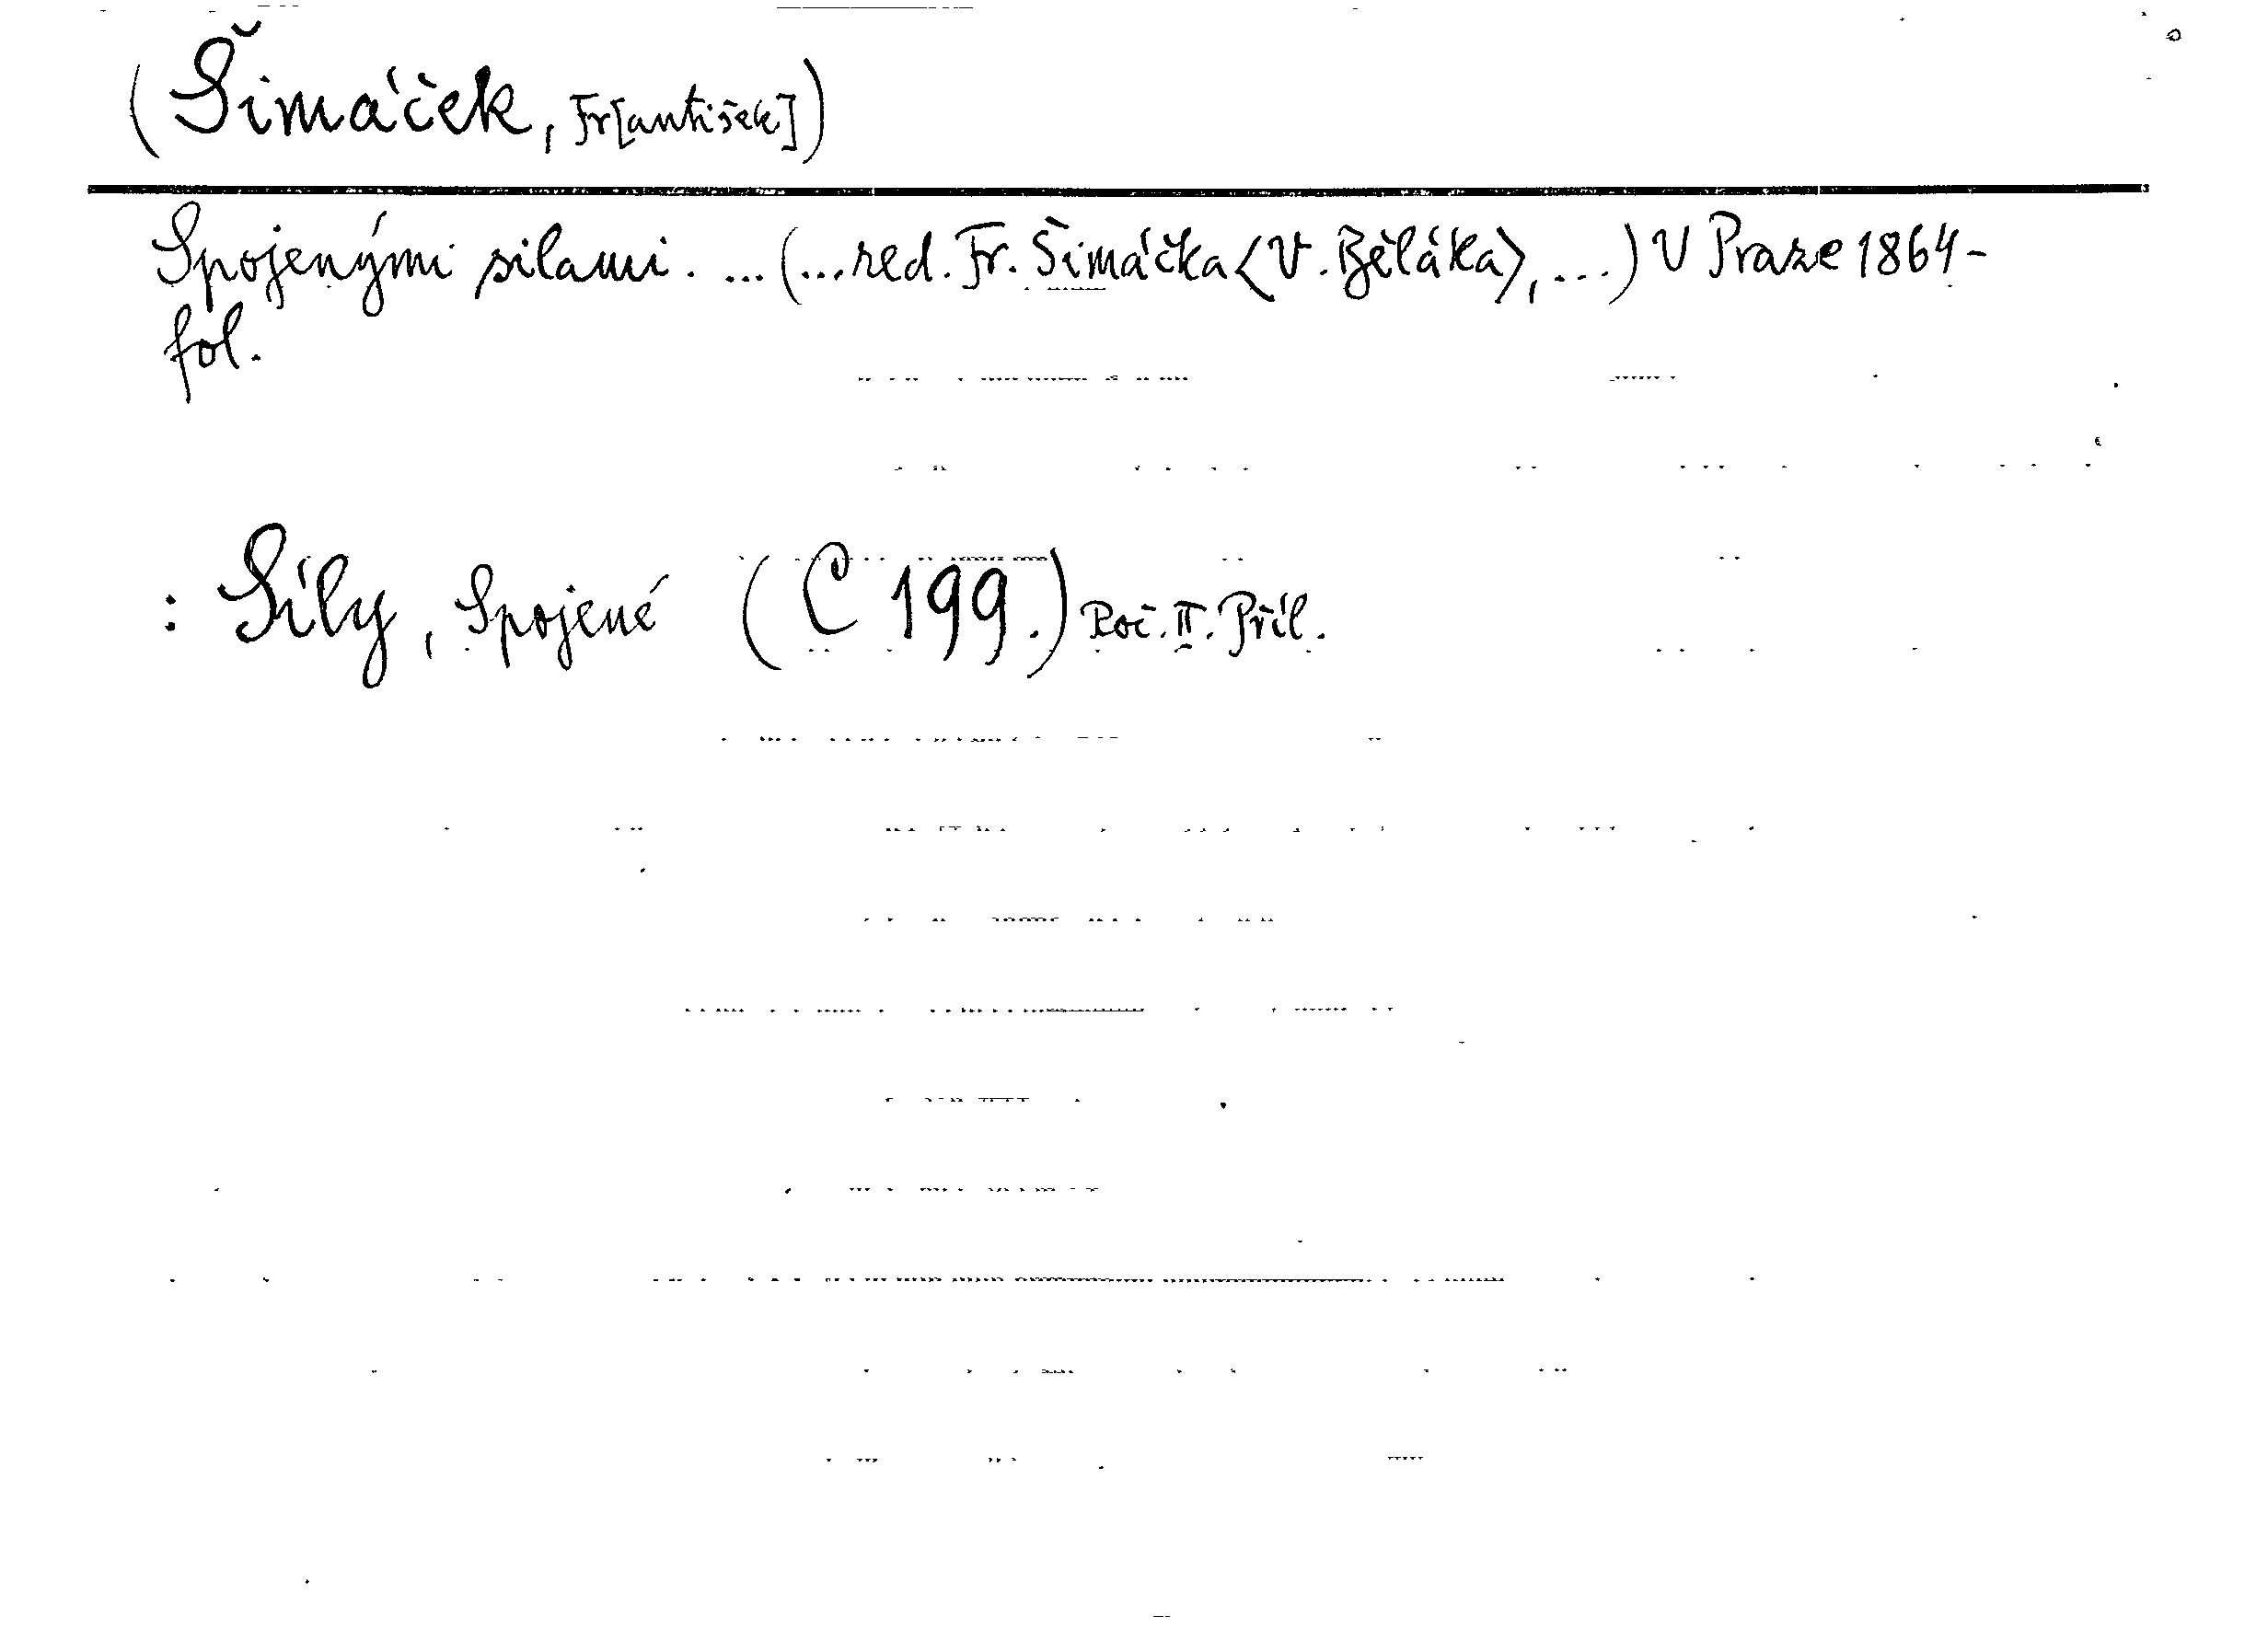 (Šimáček, Fr[antišek])
Spojenými silami. ... (... red. Fr. Šimáčka <V. Běláka>, ...) V Praze 1864-
fol.
: Síly, Spojené (C 199.) Roč. II. Příl.